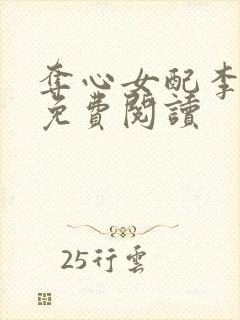 奪心女配李
免費閱讀
25行雲